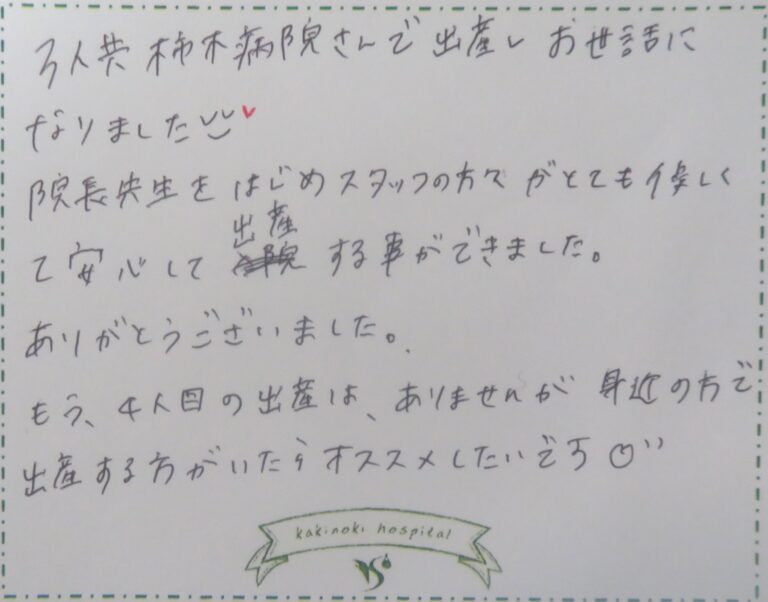 3人共 柿木病院さんで 出産し お世話に
なりました
院長先生を はじめスタッフの方々 がとても優しく
出産
て安心して する事ができました。
ありがとうございました。
もう、4人目の出産は、ありませんが 身近の方で
出産する方がいたらオススメしたいです
kakinoki hospital